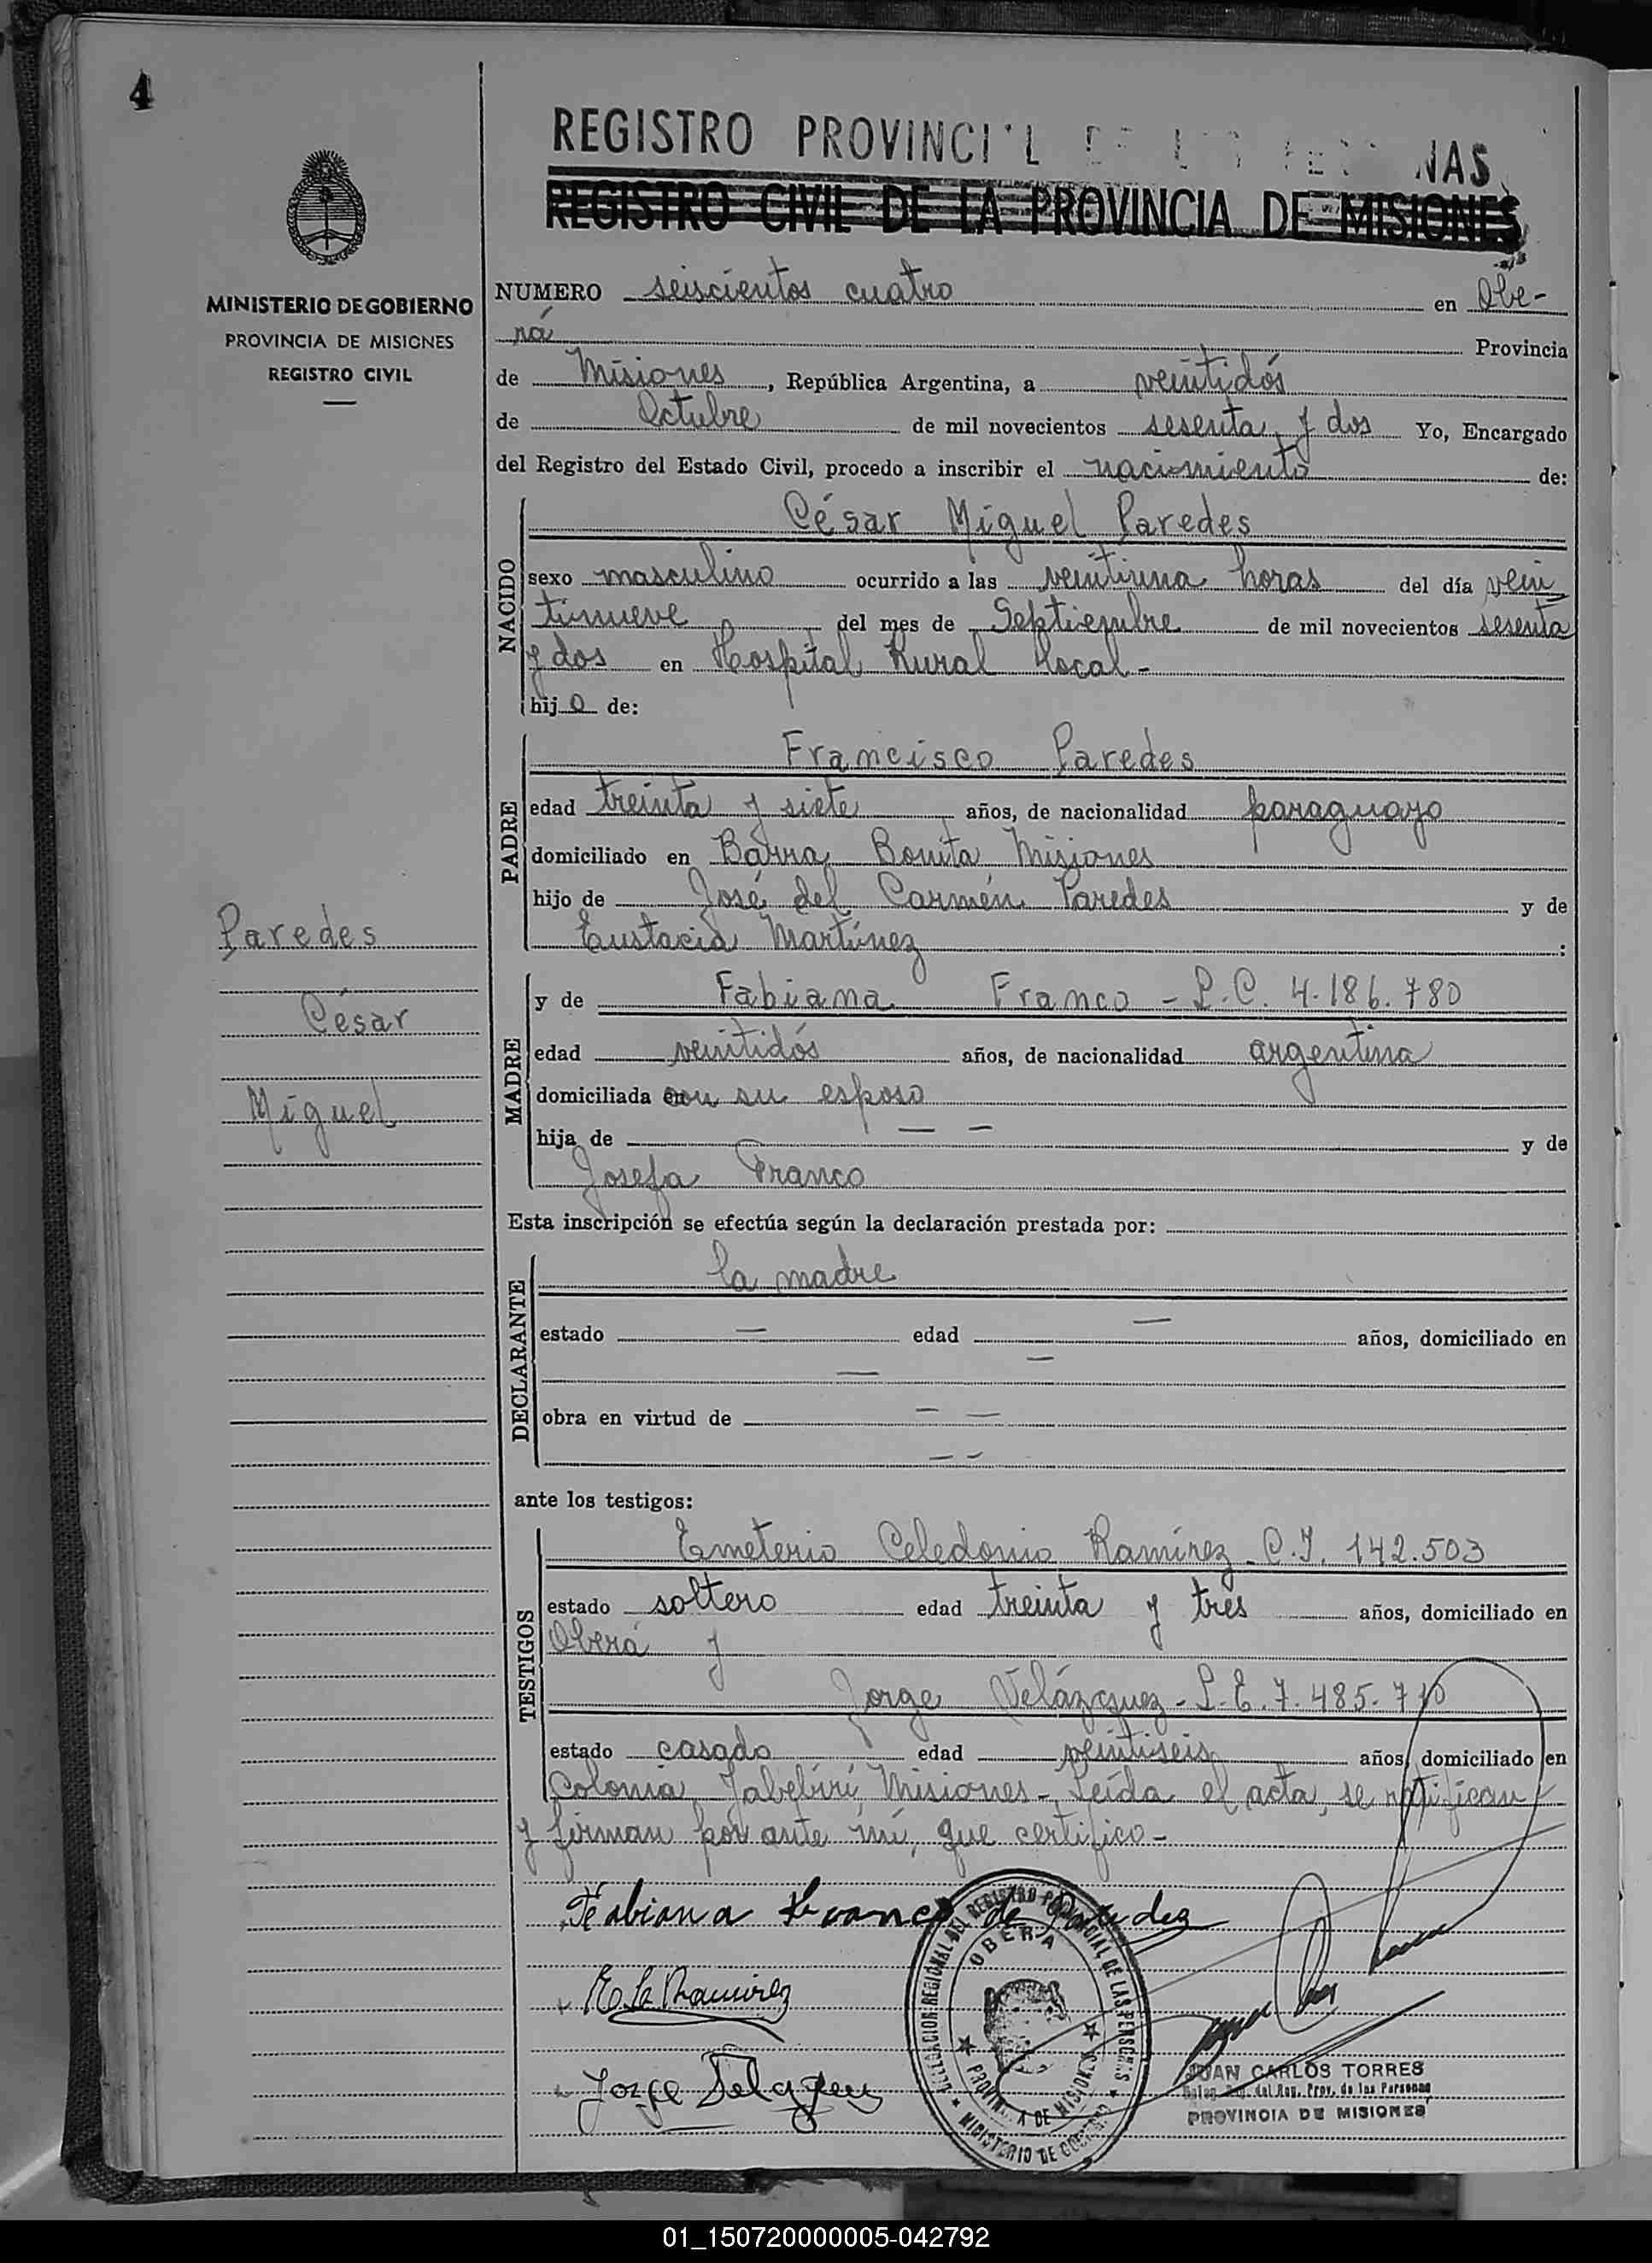 4
REGISTRO PROVINCI L
REGISTRO CIVIL DE LA PROVINCIA DE MISIONES
MINISTERIO DE GOBIERNO
PROVINCIA DE MISIONES
REGISTRO CIVIL
NUMERO seiscientos cuatro en Obe-
rá Provincia
de Misiones, República Argentina, a veintidós
de Octubre de mil novecientos sesenta y dos Yo, Encargado
del Registro del Estado Civil, procedo a inscribir el nacimiento de:
NACIDO
César Miguel Paredes
sexo masculino ocurrido a las veintiuna horas del día vein
tinueve del mes de Septiembre de mil novecientos sesenta
y dos en Hospital Rural local-
hijo de:
PADRE
Francisco Paredes
edad treinta y siete años, de nacionalidad paraguayo
domiciliado en Barra Bonita Misiones
hijo de José del Carmén Paredes y de
Eustacia Martínez:
Paredes
César
Miguel
MADRE
y de Fabiana Franco - L.C. 4.186.780
edad veintidós años, de nacionalidad argentina
domiciliada con su esposo
hija de — — y de
Josefa Franco
Esta inscripción se efectúa según la declaración prestada por:
DECLARANTE
la madre
estado — edad — años, domiciliado en
— —
obra en virtud de — —
— —
ante los testigos:
TESTIGOS
Emeterio Celedonio Ramírez - C.I. 142.503
estado soltero edad treinta y tres años, domiciliado en
Oberá y
Jorge Velázquez - L.E. 7.485.710
estado casado edad veintiseis años, domiciliado en
Colonia Yabebirí Misiones - Leída el acta, se notifican
y firman por ante mí, que certifico-
Fabiana Franco de Paredez
E C Ramirez
Jorge Velazquez
DELEGACION REGIONAL DEL REGISTRO PROVINCIAL DE LAS PERSONAS
OBERA
PROVINCIA DE MISIONES
MINISTERIO DE GOBIERNO
JUAN CARLOS TORRES
Deleg. Reg. del Reg. Prov. de las Personas
PROVINCIA DE MISIONES
01_150720000005-042792